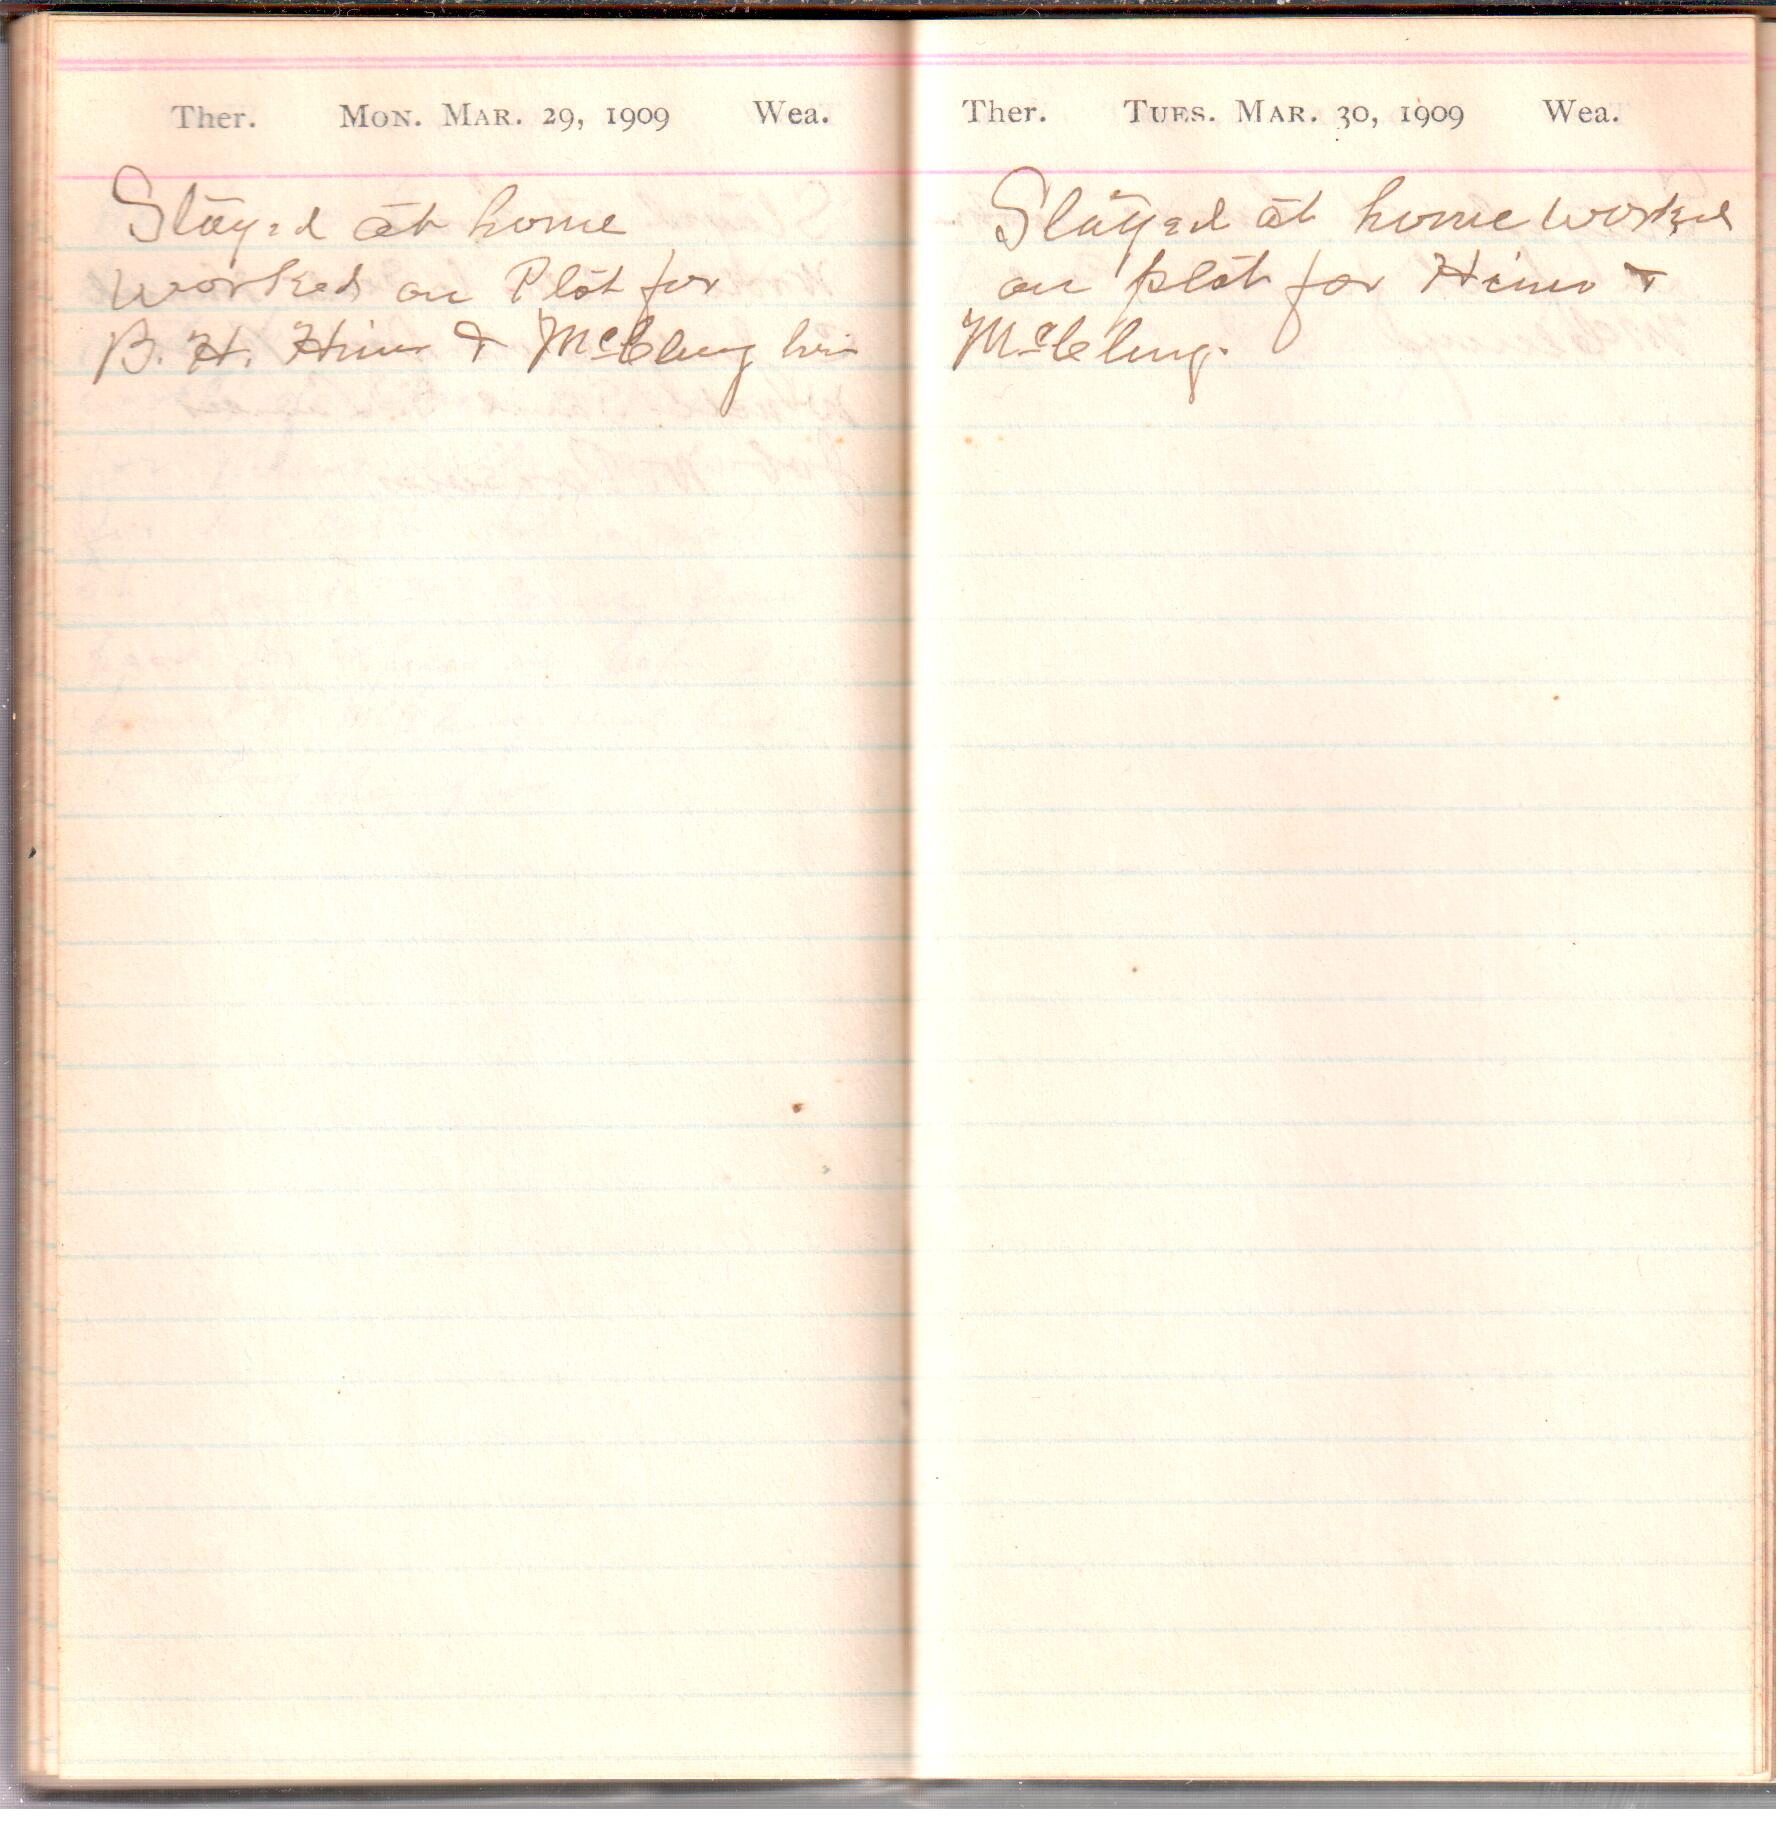 Ther. Mon. Mar. 29, 1909 Wea.
Stayed at home
worked on Plat for
B. H. Hines & McClung
Ther. Tues. Mar. 30, 1909 Wea.
Stayed at home worked
on plat for Hines &
McClung.